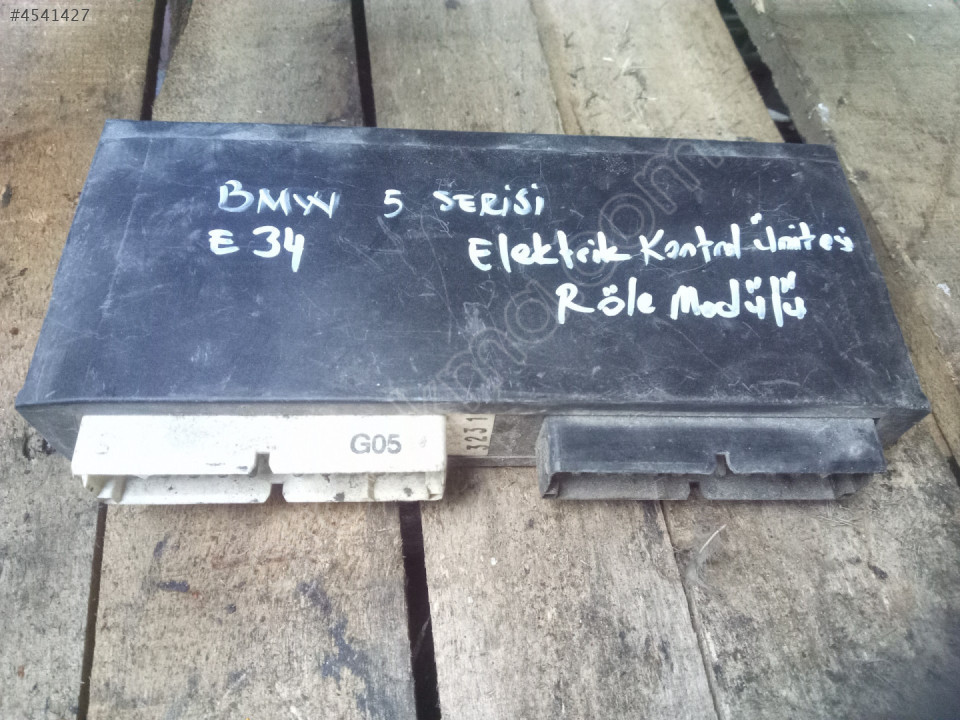 #4541427
BMW 5 SERiSi
E 34
Elektrik Kontrol Ünitesi
Röle Modülü
G05
3231